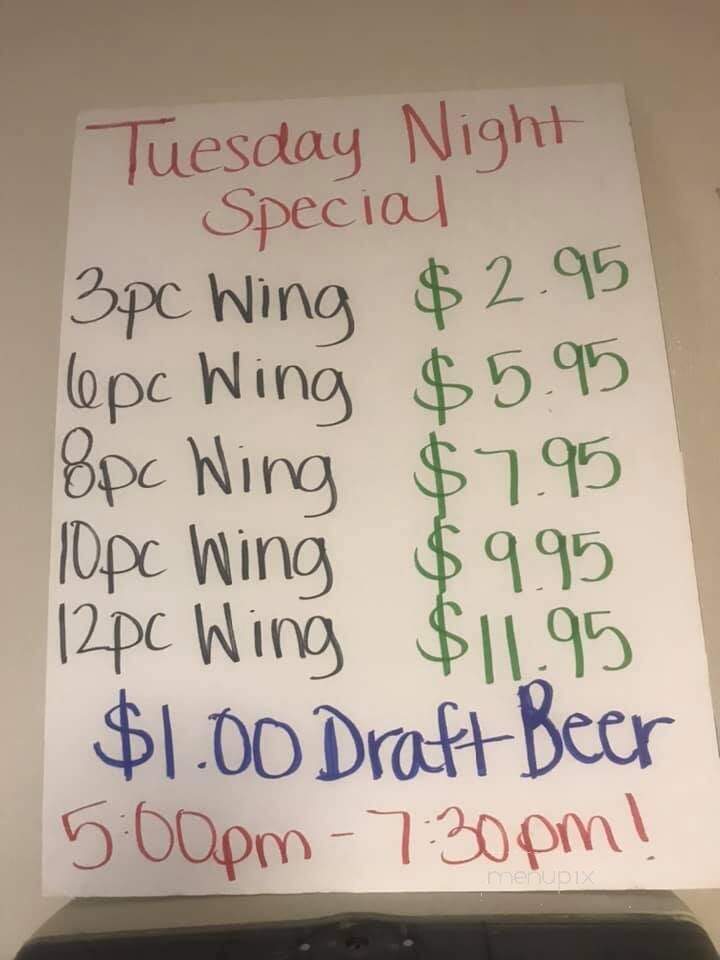 Tuesday Night
Special
3pc Wing $2.95
6pc Wing $5.95
8pc Wing $7.95
10pc Wing $9.95
12pc Wing $11.95
$1.00 Draft Beer
5:00pm - 7:30pm!
menupix